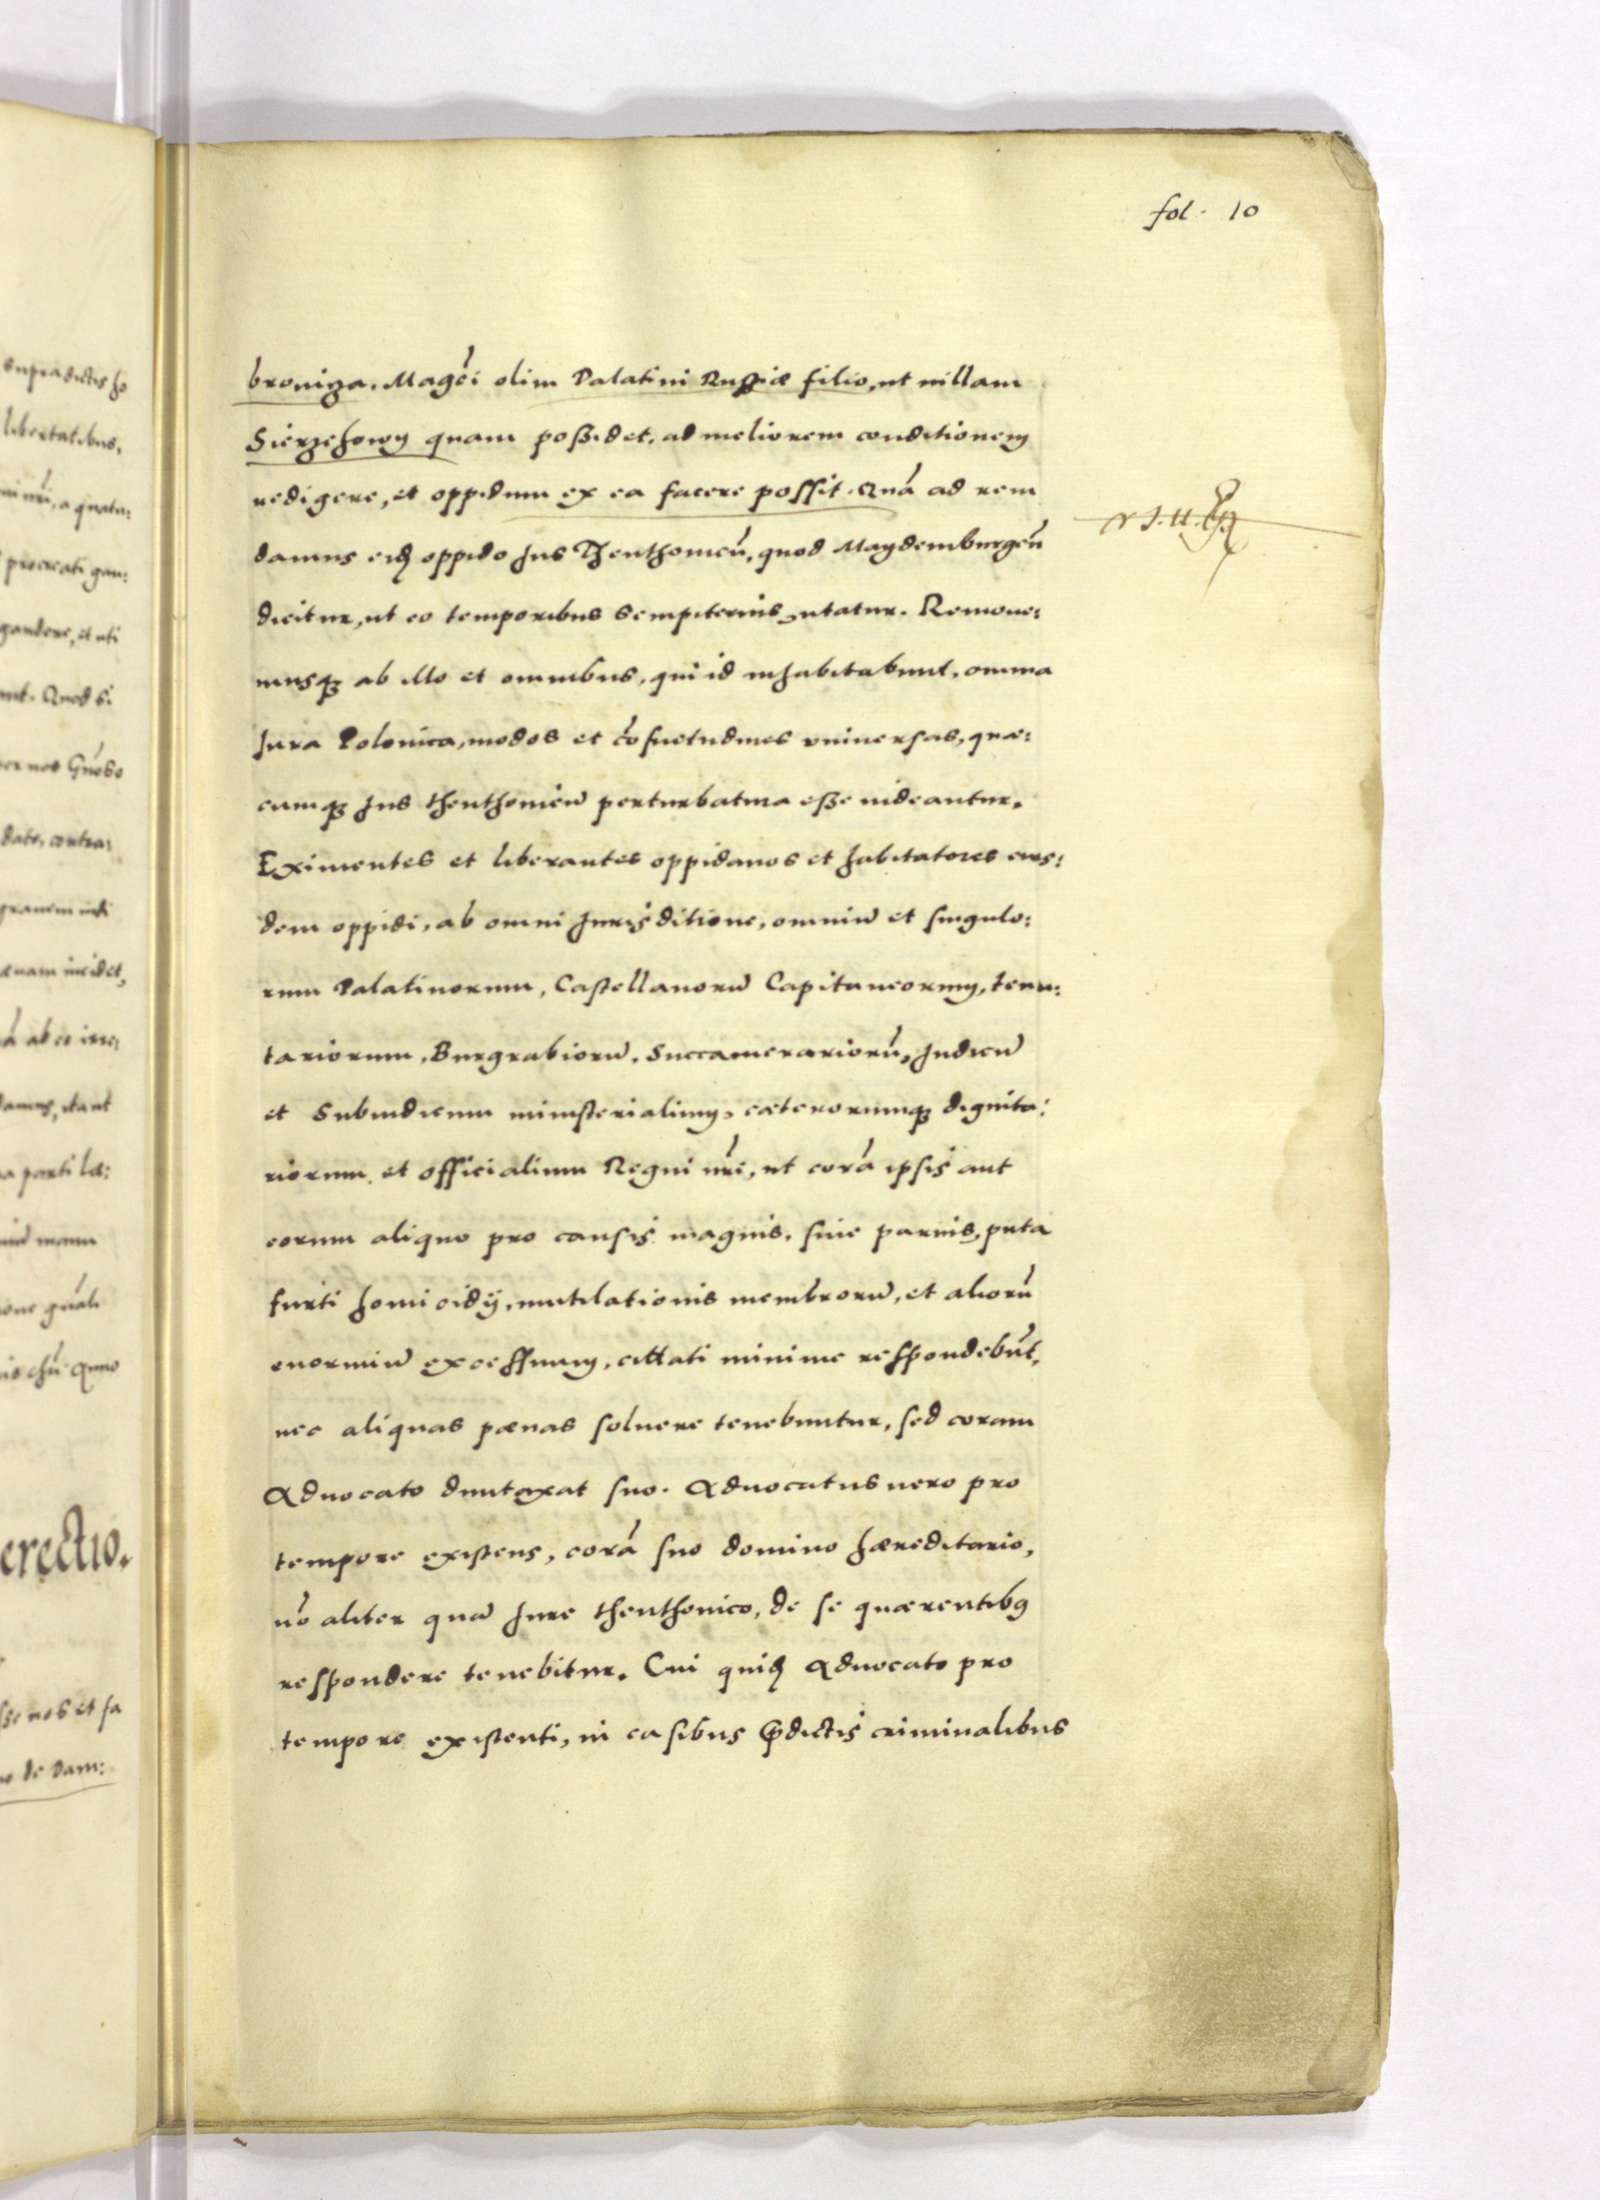 fol. 10
broniza. Magci olim Palatini Russiæ filio, ut uillam
Sierzehowy quam possidet, ad meliorem conditionem
redigere, et oppidum ex ea facere possit. Quá ad rem
damus eidem oppido Jus Thenthonicũ, quod Maydemburgeñ
dicitur, ut eo temporibus sempiternis utatur. Remoue:
musq; ab illo et omnibus, qui id inhabitabunt, omnia
Jura Polonica, modos et cõsuetudines uniuersas, quæ:
cumq; Jus thenthonicũ perturbatura esse uideantur.
Eximentes et liberantes oppidanos et habitatores eius:
dem oppidi, ab omni Jurisditione, omniũ et singulo:
rum Palatinorum, Castellanorũ Capitaneorum, tenu:
tariorum, Burgrabiorũ, Succamerariorũ, Judicũ
et Subiudicum ministerialium, cæterorumq; dignita:
riorum et officialium Regni nrĩ, ut corá ipsis aut
eorum aliquo pro causis magnis, siue paruis, puta
furti homicidij, mutilationis membrorũ, et aliorũ
enormiũ excessuum, cittati minime respondebũt,
nec aliquas pænas soluere tenebuntur, sed coram
Aduocato duntaxat suo. Aduocatus uero pro
tempore existens, corá suo domino hæreditario,
nõ aliter quã Jure thenthonico, de se quærentibus
respondere tenebitur. Cui quidem Aduocato pro
tempore existenti, in casibus prædictis criminalibus
supradictis ho
libertatibus,
procreati gau:
gaudere, et uti
Quod si
contra:
incidet,
ab eo
parti læ:
Anno
erectio.
nos et fa
de Dam: